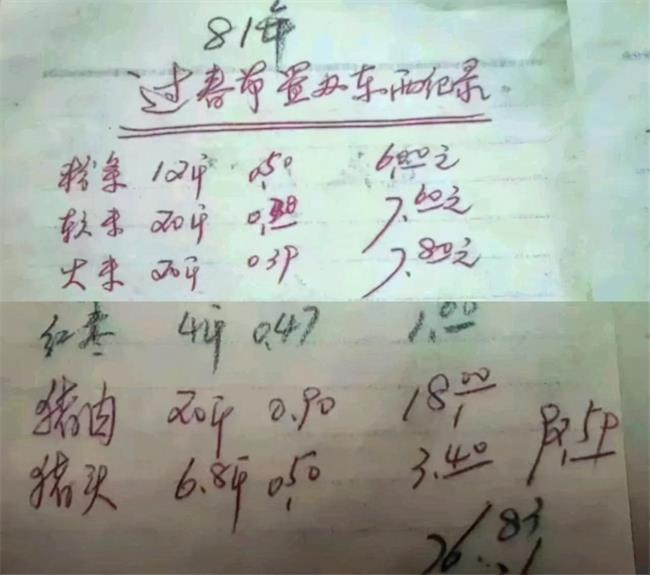 81年
过春节置办东西纪录
粉条 12斤 0.50 6.00元
软米 20斤 7.60元
大米 20斤 0.39 7.80元
红枣 4斤 0.47 1.00
猪肉 20斤 0.90 18.00
猪头 6.8斤 0.50 3.40
26.83